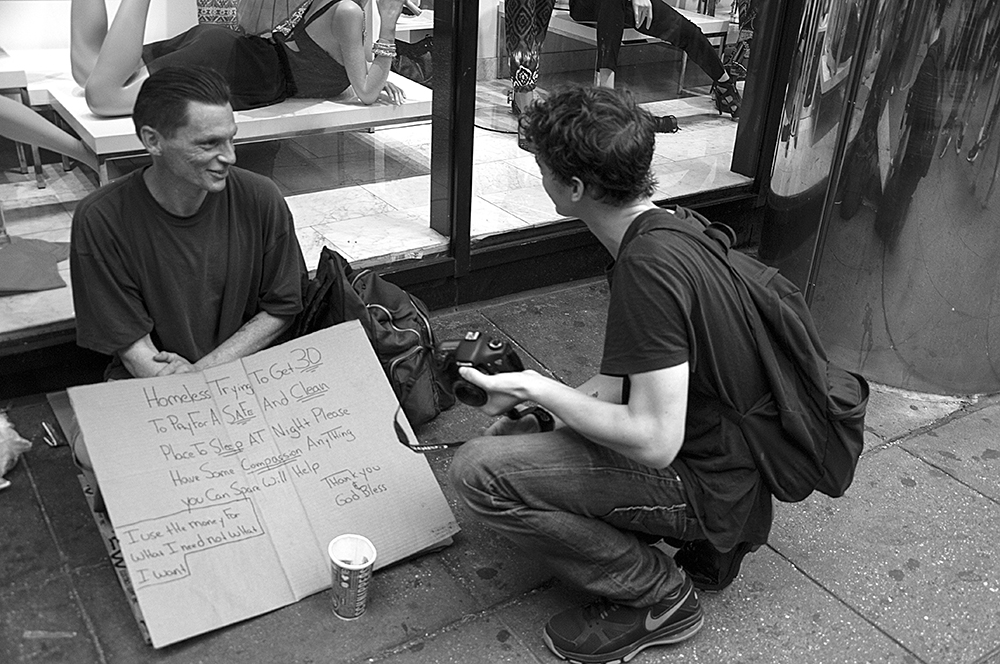 Homeless Trying To Get 30
To Pay For A SAfe And Clean
Place To Sleep AT Night Please
Have Some Compassion Anything
you Can Spare Will Help
Thank you
&
God Bless
I use the money For
What I need not what
I want